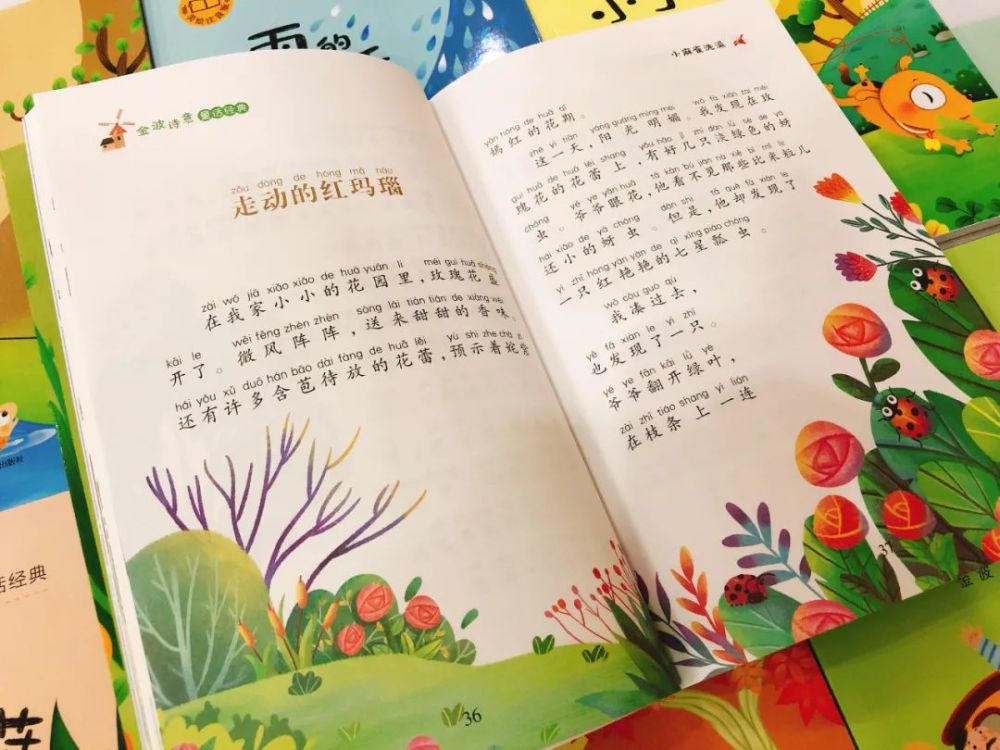 雨的
金波诗意 童话经典
zǒu dòng de hóng mǎ nǎo
走动的红玛瑙
zài wǒ jiā xiǎo xiǎo de huā yuán li méi gui huā shèng
在我家小小的花园里,玫瑰花盛
kāi le wēi fēng zhèn zhèn sòng lái tián tián de xiāng wèi
开了。微风阵阵,送来甜甜的香味。
hái yǒu xǔ duō hán bāo dài fàng de huā lěi yù shì zhe chà
还有许多含苞待放的花蕾,预示着姹紫
36
小麻雀洗澡
yān hóng de huā qī
嫣红的花期。
zhè yì tiān yáng guāng míng mèi wǒ fā xiàn zài méi
这一天,阳光明媚。我发现在玫
gui huā de huā lěi shang yǒu hǎo jǐ zhī dàn lǜ sè de yá
瑰花的花蕾上,有好几只淡绿色的蚜
chóng yé ye yǎn huā tā kàn bú jiàn nà xiē bǐ mǐ lì
虫。爷爷眼花,他看不见那些比米粒儿
hái xiǎo de yá chóng dàn shì tā què fā xiàn le
还小的蚜虫。但是,他却发现了
yì zhī hóng yàn yàn de qī xīng piáo chóng
一只红艳艳的七星瓢虫。
wǒ còu guo qù
我凑过去,
yě fā xiàn le yì zhī
也发现了一只。
yé ye fān kāi lǜ yè
爷爷翻开绿叶,
zài zhī tiáo shang yì lián
在枝条上一连
37
金波
出版社
话经典